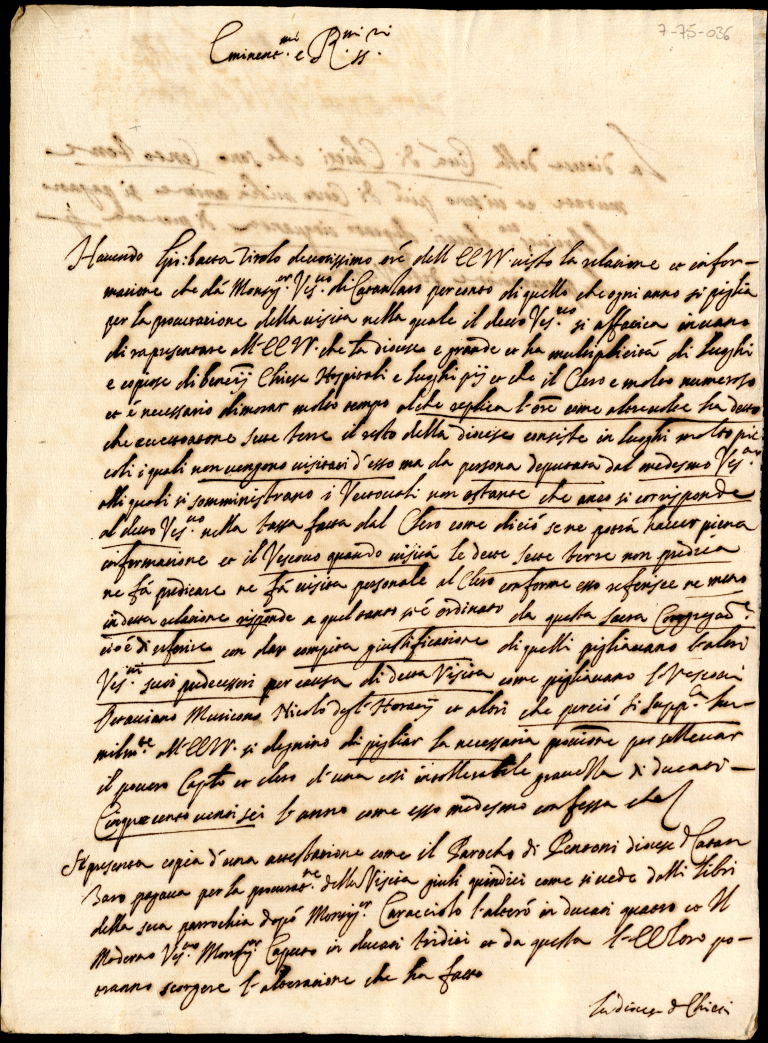 7-75-036
Eminent.mi e R.mi SS.ri
Havendo Gio: batta Tirolo devotissimo ore dell'EE VV. visto la relatione et infor-
matione che dà Monsig.or Ves.vo di Catanzaro per conto di quello che ogni anno si piglia
per la procuratione della visita nella quale il detto Ves.vo si affatica in vano
di rapresentare all'EE VV. che la diocese è grande et ha multiplicità di luoghi
e copiose di beneficij Chiese Hospitali e luoghi pij et che il Clero è molto numeroso
et è necessario dimorar molto tempo al che replica l'ore come altre volte ha detto
che eccettuatone sette terre il resto della diocese consiste in luoghi molto pic
coli i quali non vengono visitati d'esso ma da persona deputata dal medesmo Ves.vo
alli quali si somministrano i Vettovali non ostante che anco si corrisponde
al detto Ves.vo nella tassa fatta dal Clero come di ciò se ne potrà haver piena
informatione et il Vescovo quando visita le dette sette terre non predica
ne fà predicare ne fà visita personale al Clero conforme esso referisce ne meno
in detta relatione risponde a quel tanto si è ordinato da questa sacra Congregat.ne
cioè di referire con dar compita giustificatione di quelli pigliavano l'altri
Ves.vi suoi predecessori per causa di detta Visita come pigliavano l'Vescovi
Ottaviano Nicolò degl'Horatij et altri che perciò si supp.ca hu-
milm.te all'EE VV. si degnino di pigliar la necessaria provisione per sollevar
il povero Cap.lo et clero d'una così intollerabile gravezza di ducati
Cinquecento venti sei l'anno come esso medesmo confessa che
Si presenta copia d'una attestatione come il Parocho di Pentoni diocese di Catan
zaro pagava per la procurat.ne della Visita giulij quindici come si vede dalli libri
della sua parrochia dopò Monsig.or Caracciolo l'alterò in ducati quattro et Il
Moderno Ves.vo Monsig.or Caputo in ducati tridici et da questa l'EE loro po-
tranno scorgere l'alteratione che ha fatto
La diocese di Chieti